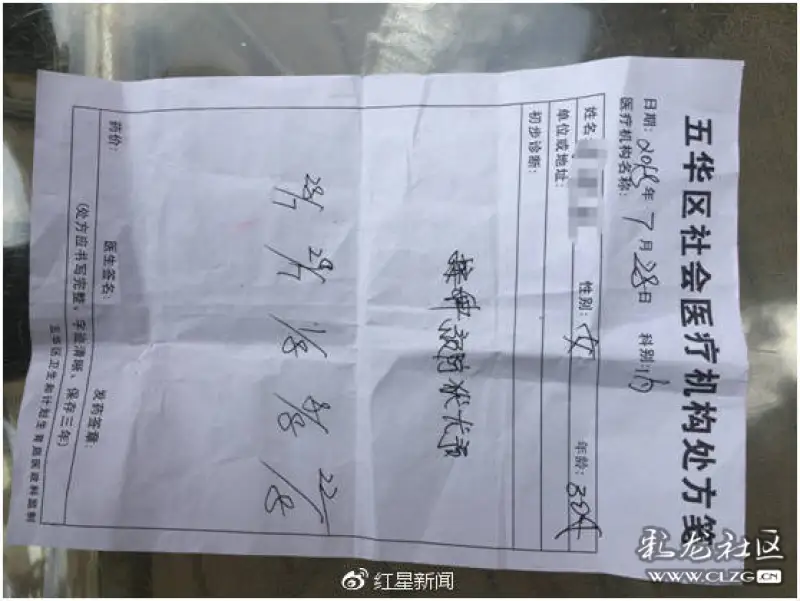 五华区社会医疗机构处方笺
日期: 年 7 月 28 日 科别: 内
医疗机构名称:
姓名: 性别: 女 年龄: 30
单位或地址:
初步诊断:
28/7 29/7 1/8 8/8 22/8
药价: 医生签名: 发药签章:
(处方应书写完整，字迹清晰、保存三年)
五华区卫生和计划生育局医政科监制
红星新闻
彩龙社区
WWW.CLZG.CN